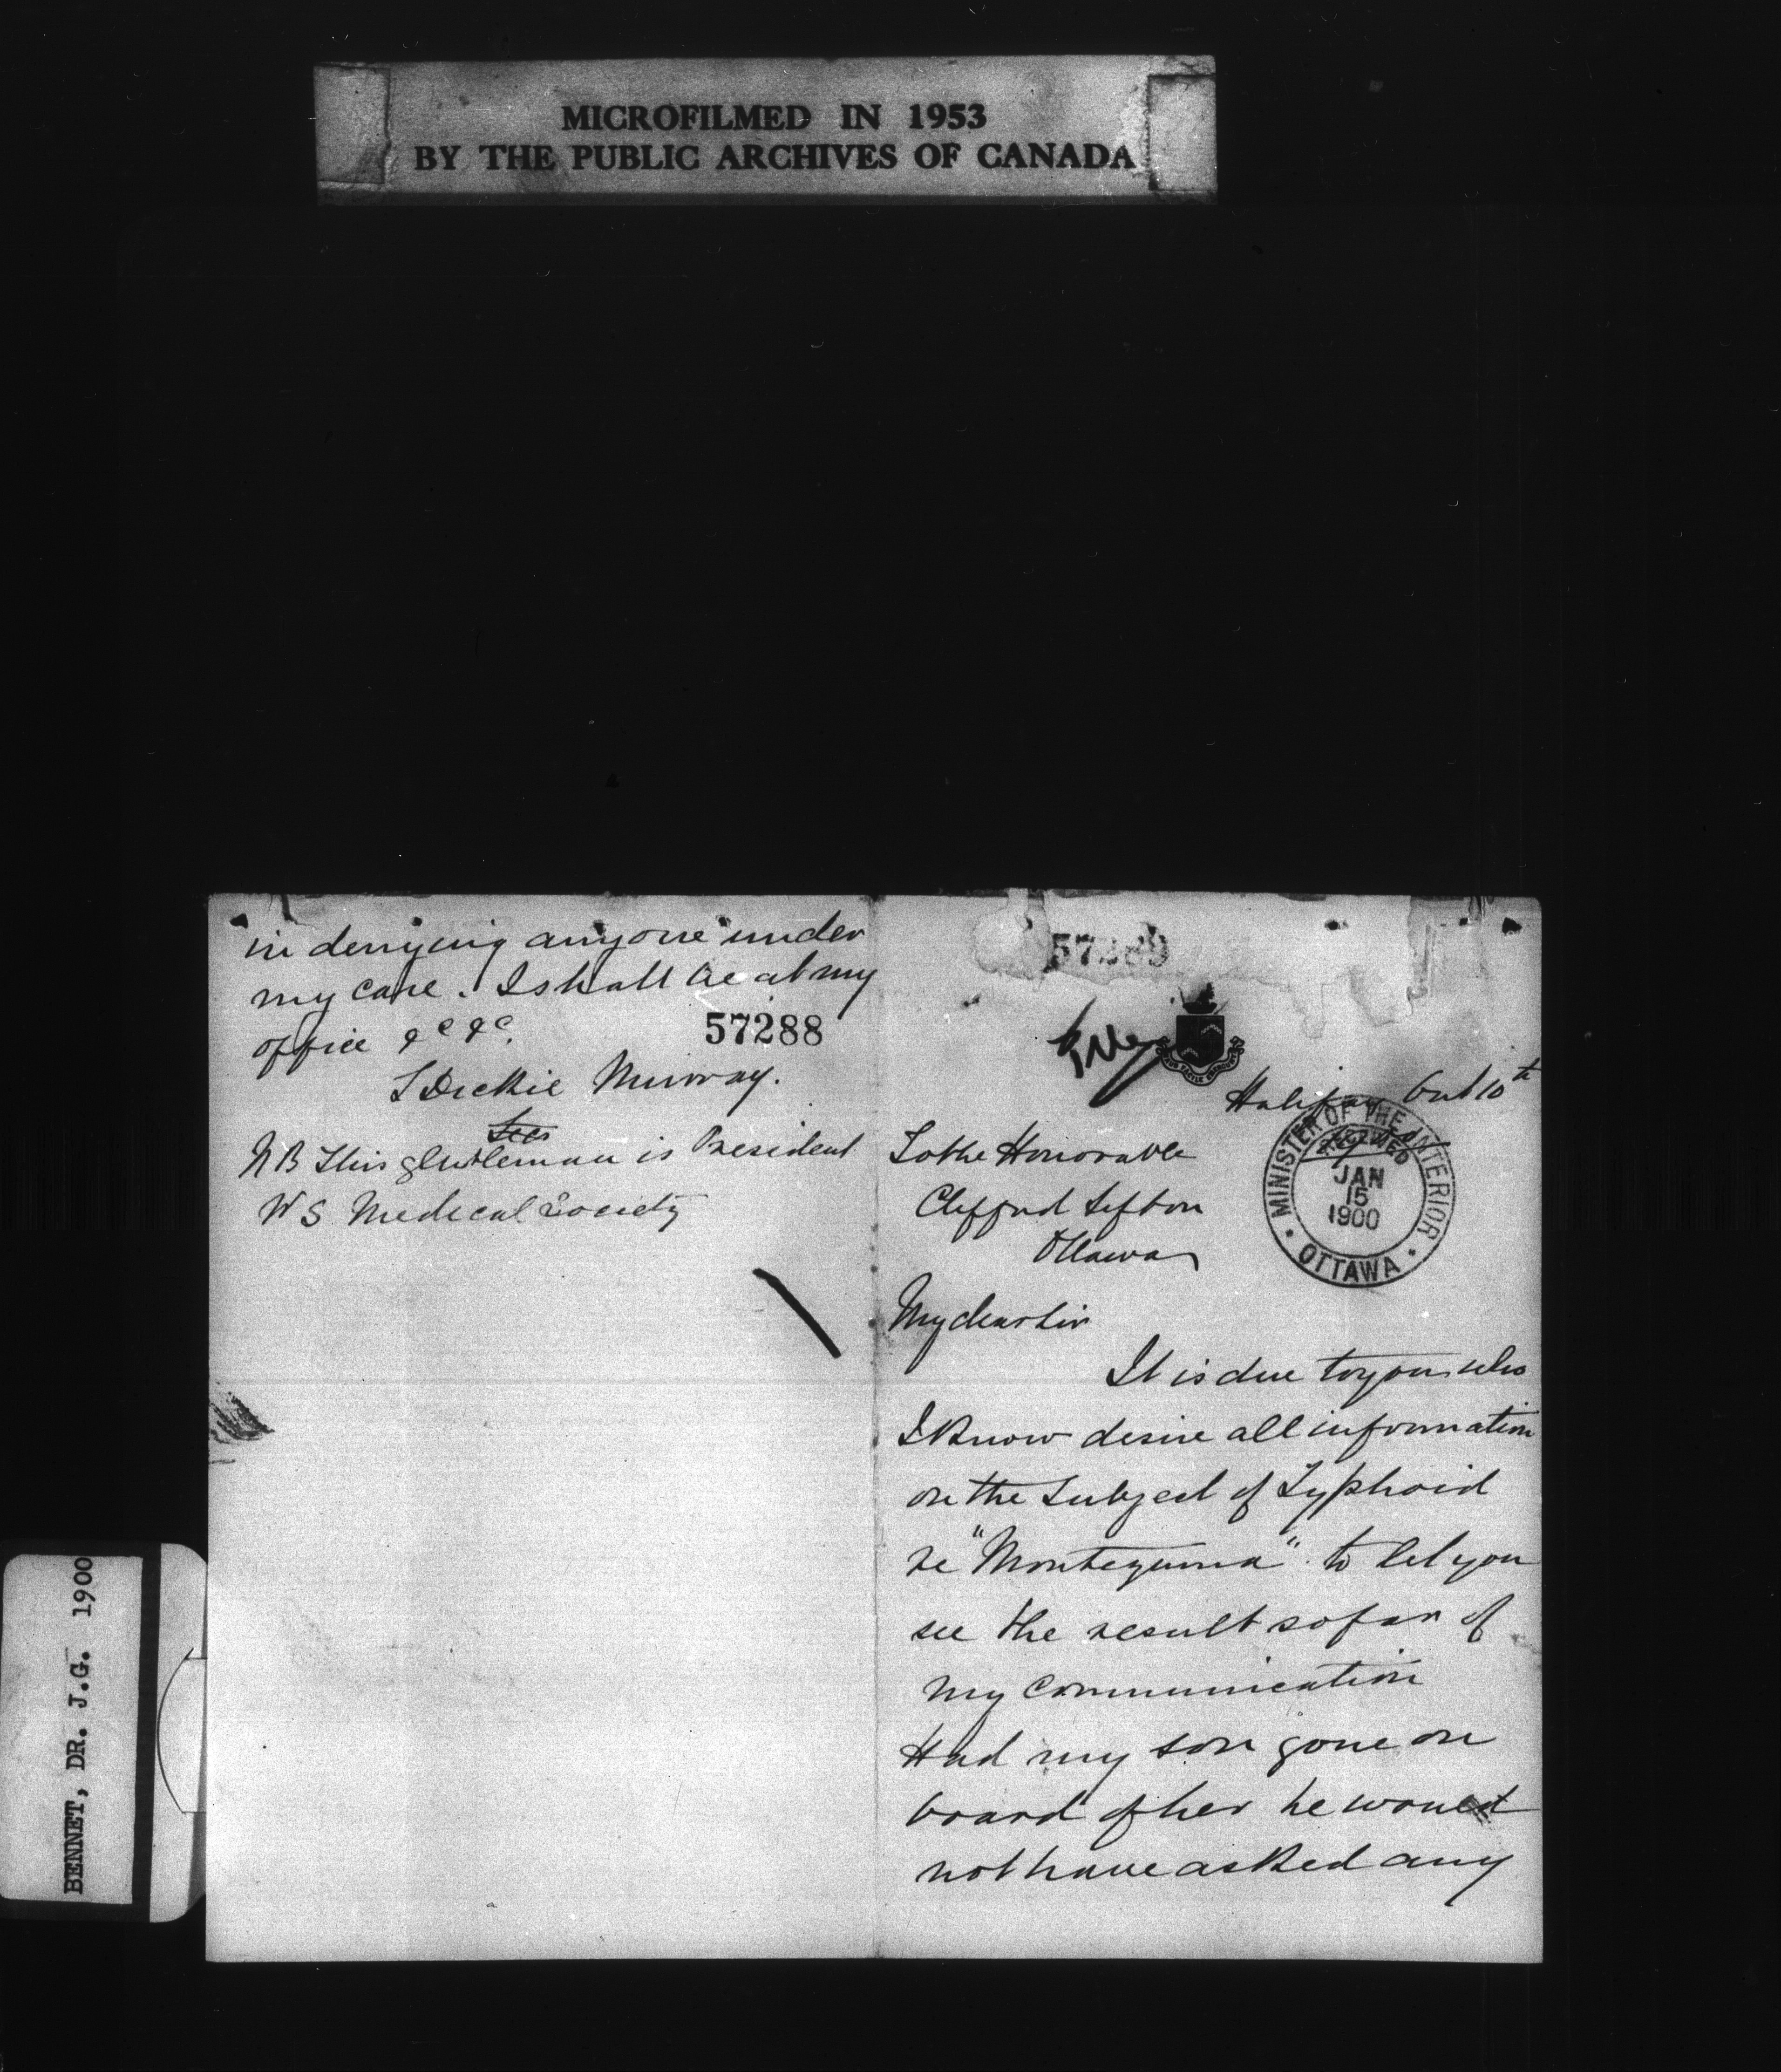 MICROFILMED IN 1953
BY THE PUBLIC ARCHIVES OF CANADA
in denying anyone under
my care. I shall be at my
office &c &c.
57288
L Dickie Murray.
NB This gentleman is President
N S Medical Society
57289
Halifax 10th
To the Honorable
Clifford Sifton
Ottawa
MINISTER OF THE INTERIOR
RECEIVED
JAN
15
1900
OTTAWA
My dear Sir
It is due to you who
I know desire all information
on the subject of Typhoid
re "Montezuma" to let you
see the result so far of
my communication
Had my son gone on
board of her he would
not have asked any
BENNET, DR. J.G. 1900